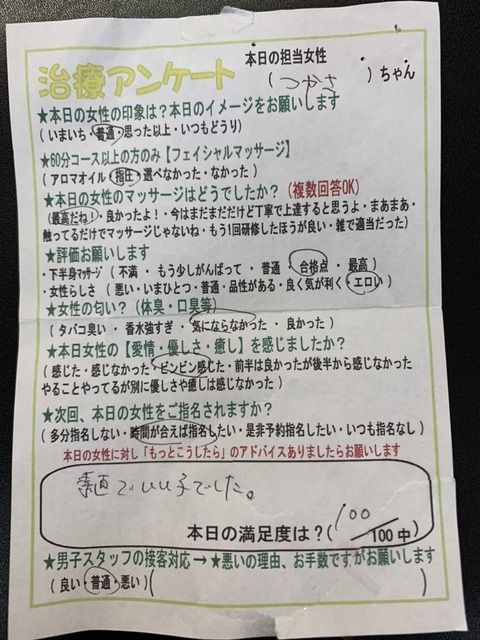 本日の担当女性
治療アンケート
( つかさ )ちゃん
★本日の女性の印象は？本日のイメージをお願いします
( いまいち・普通・思った以上・いつもどうり)
★60分コース以上の方のみ【フェイシャルマッサージ】
( アロマオイル・指圧・選べなかった・なかった )
★本日の女性のマッサージはどうでしたか？(複数回答OK)
(最高だね！・良かったよ！・今はまだまだだけど丁寧で上達すると思うよ・まあまあ・
触ってるだけでマッサージじゃないね・もう1回研修したほうが良い・雑で適当だった)
★評価お願いします
・下半身マッサージ ( 不満 ・ もう少しがんばって ・ 普通 ・ 合格点 ・ 最高 )
・女性らしさ ( 悪い・いまひとつ・普通・品性がある・良く気が利く・エロい )
★女性の匂い？ (体臭・口臭等)
( タバコ臭い ・ 香水強すぎ ・ 気にならなかった ・ 良かった )
★本日女性の【愛情・優しさ・癒し】を感じましたか？
( 感じた・感じなかった・ビンビン感じた・前半は良かったが後半から感じなかった
やることやってるが別に優しさや癒しは感じなかった )
★次回、本日の女性をご指名されますか？
( 多分指名しない・時間が合えば指名したい・是非予約指名したい・いつも指名なし )
本日の女性に対し「もっとこうしたら」のアドバイスありましたらお願いします
素直でいい子でした。
本日の満足度は？( 100／100中 )
★男子スタッフの接客対応→★悪いの理由、お手数ですがお願いします
( 良い・普通・悪い )( )